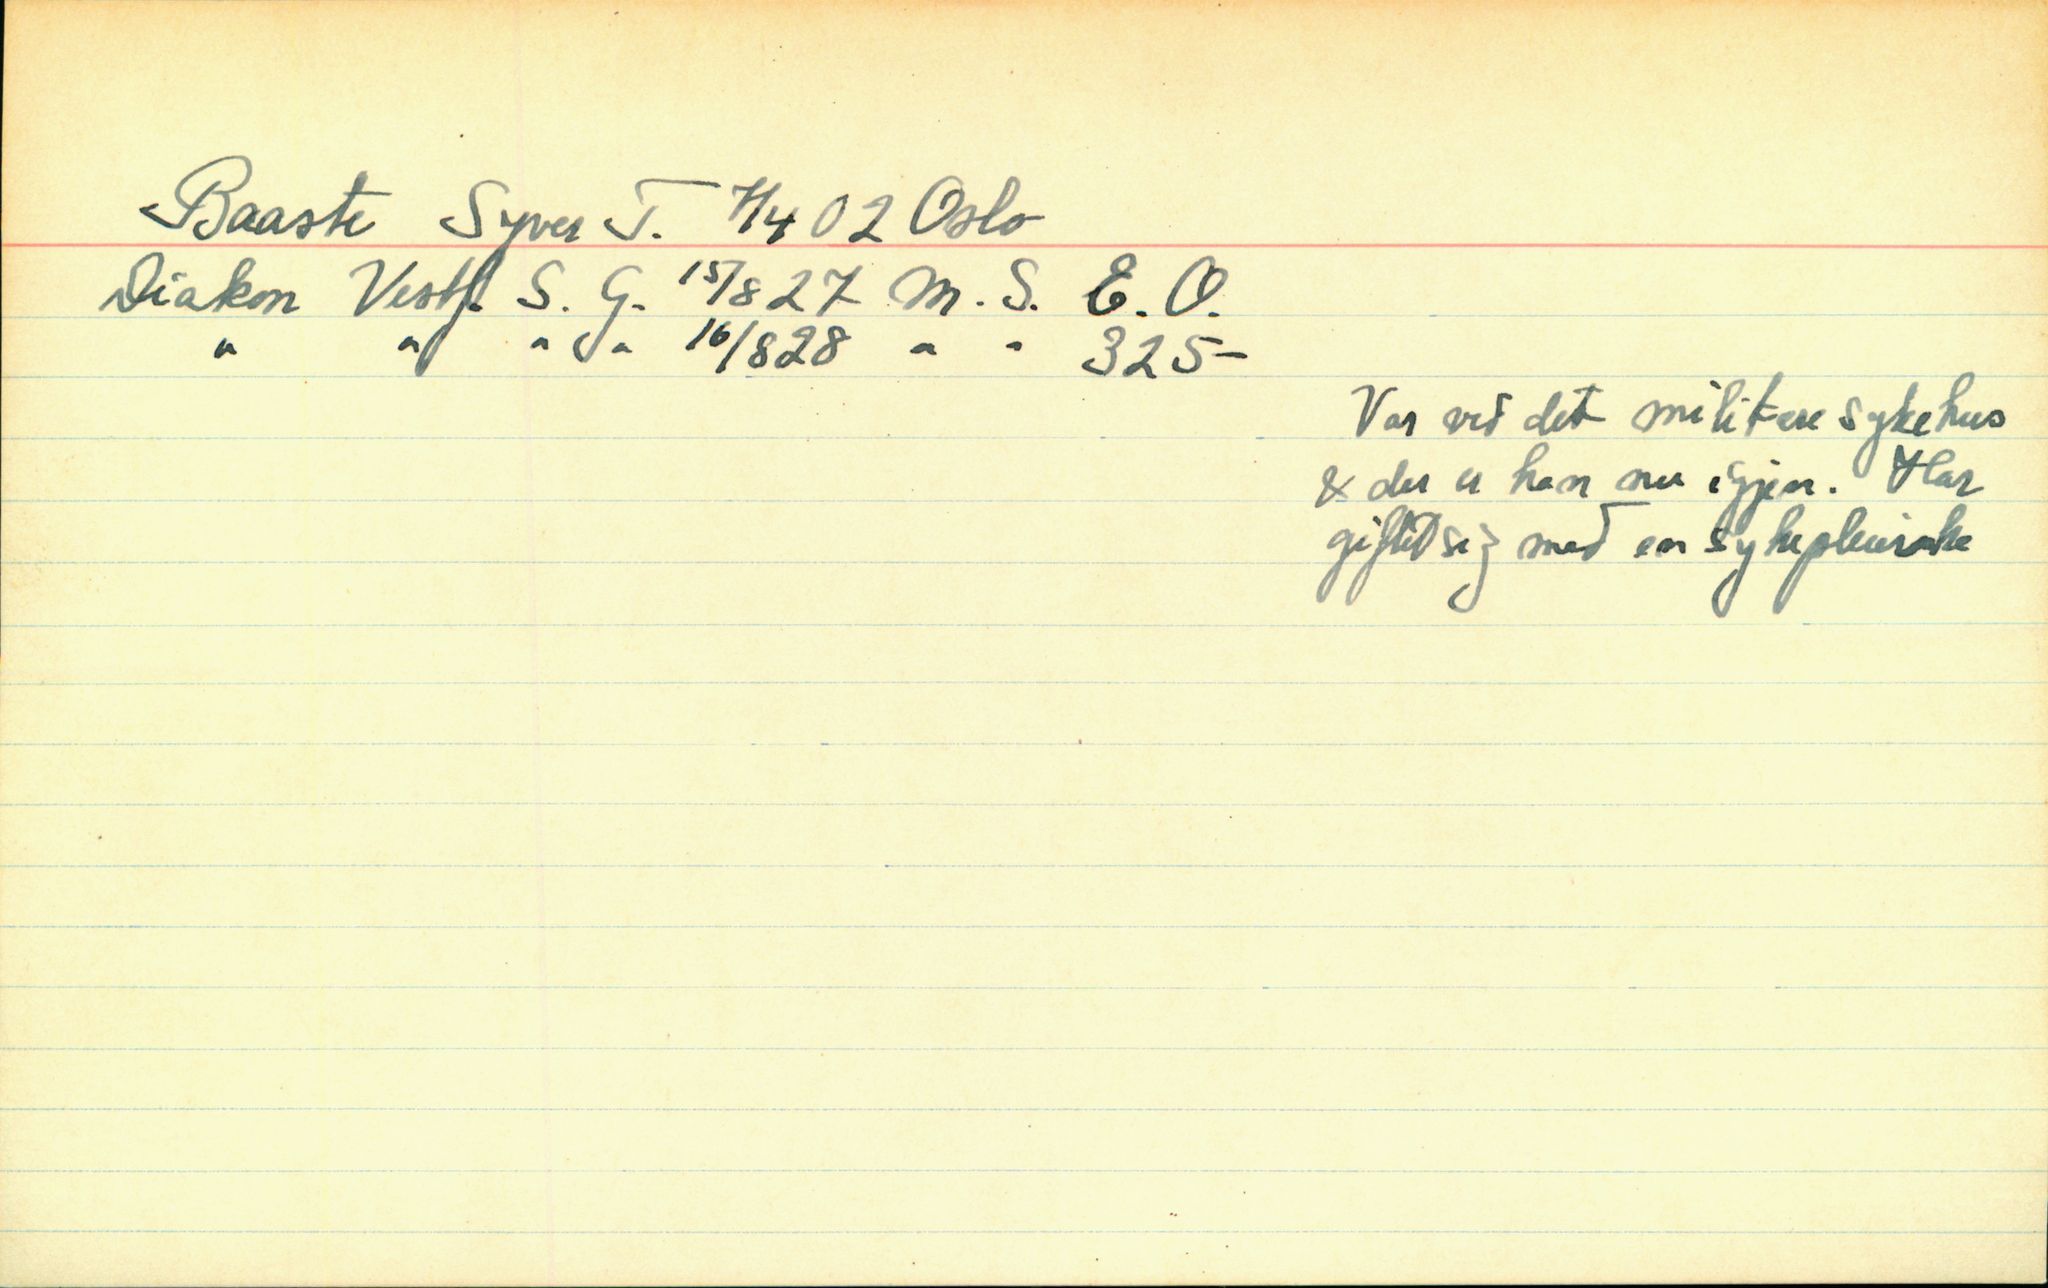 Baaste Syver T. 7/4 02 Oslo
Diakon Vestf. S. G. 15/8 27 M. S. E. O.
" " " " 16/8 28 " " 325-
Var ved det militære sykehus
& der er han nu igjen. Har
giftet sig med en sykepleierske